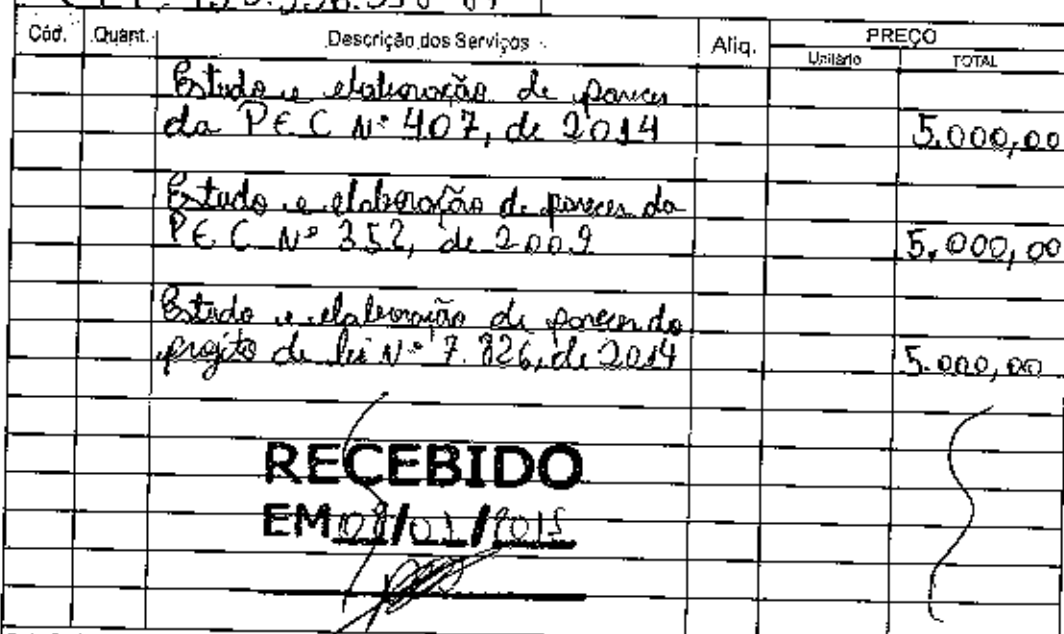 Cód. Quant. Descrição dos Serviços Aliq. PREÇO
Unitário TOTAL
Estudo e elaboração de parecer
da PEC Nº 407, de 2014 5.000,00
Estudo e elaboração de parecer da
PEC Nº 352, de 2009 5.000,00
Estudo e elaboração de parecer do
projeto de lei Nº 7.826, de 2014 5.000,00
RECEBIDO
EM / / 2015